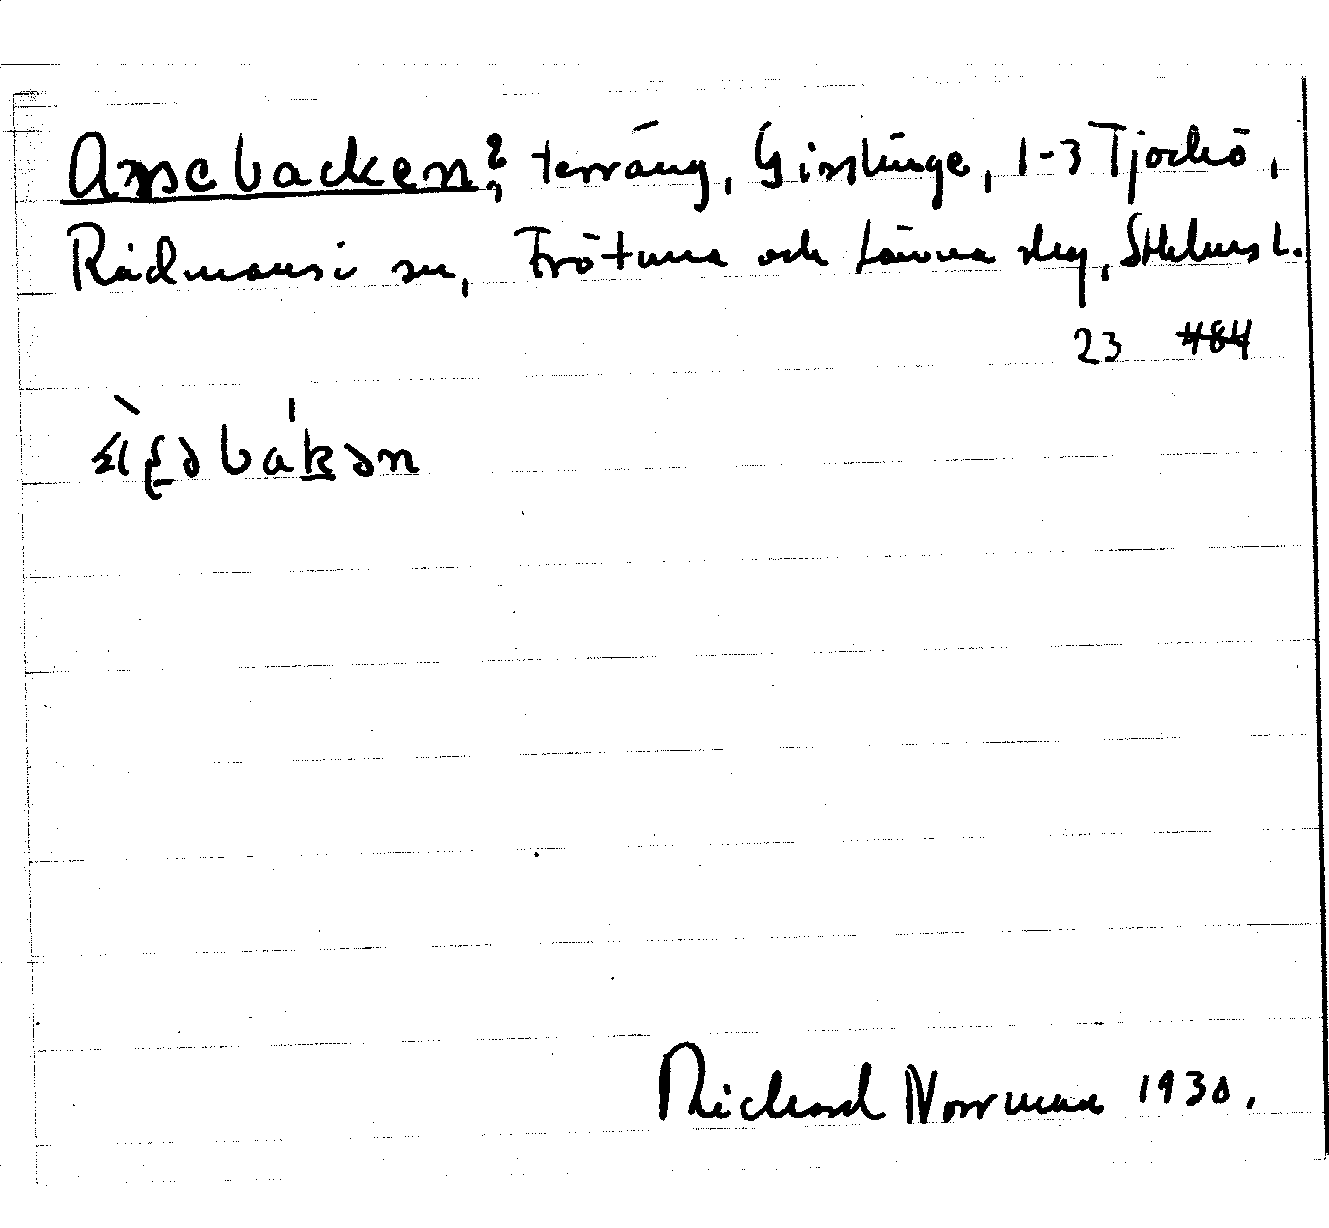 Assebacken?, terräng, Gisslinge, 1-3 Tjockö,
Rådmansö sn, Frötuna och Länna skg, Sthlms l.
23 484
bakən
Richard Norrman 1930.